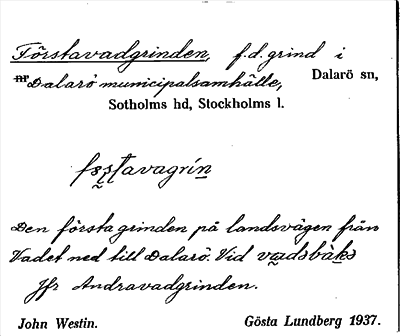 Förstavadgrinden, f.d. grind i
Dalarö municipalsamhälle, Dalarö sn,
Sotholms hd, Stockholms l.
Den första grinden på landsvägen från
Vadet ned till Dalarö. Vid vadsbàks
Jfr Andravadgrinden.
John Westin. Gösta Lundberg 1937.